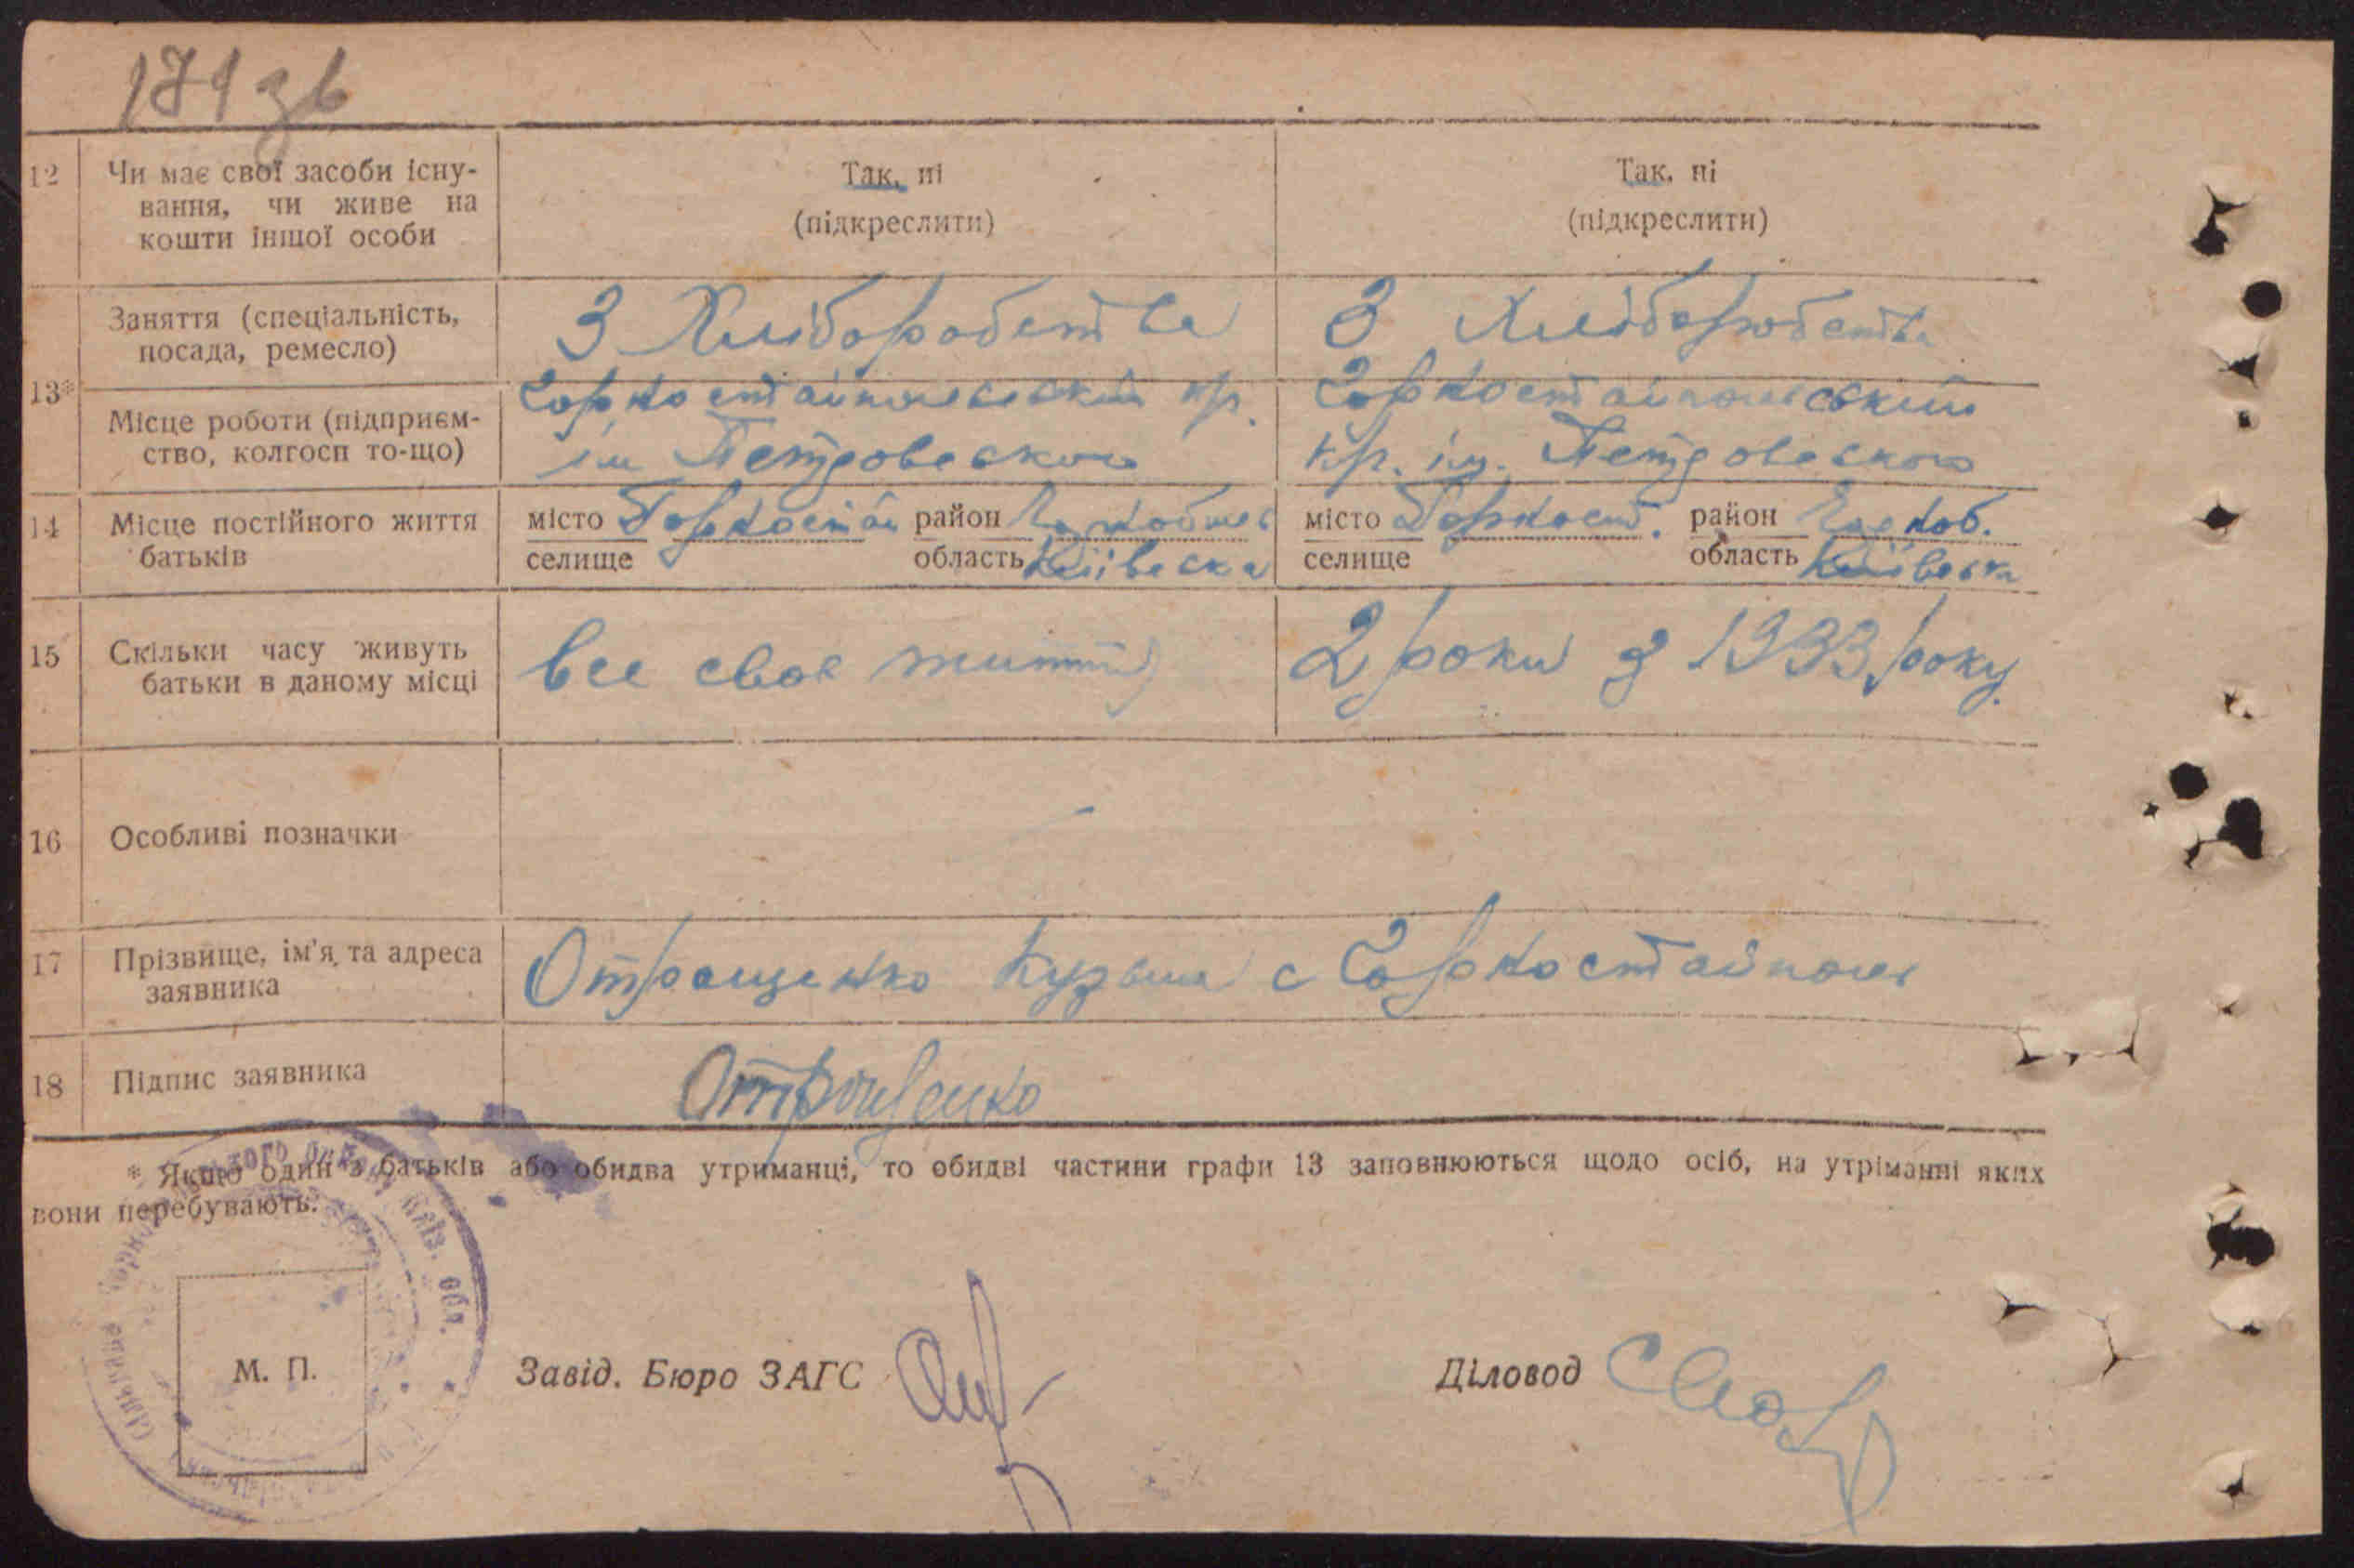 171 зв
12 Чи має свої засоби існу- Так, ні Так, ні
вання, чи живе на (підкреслити) (підкреслити)
кошти іншої особи
13* Заняття (спеціальність, З Хліборобства З Хліборобства
посада, ремесло)
Місце роботи (підприєм- Горностайпольський кр. Горностайпольський
ство, колгосп то-що) ім Петровського кр. ім. Петровського
14 Місце постійного життя місто Горностай район місто Горност. район
батьків селище область Київська селище область Київська
15 Скільки часу живуть все своє життя 2 роки з 1933 року
батьки в даному місці
16 Особливі позначки
17 Прізвище, ім'я та адреса Отрощенко Кузьма с Горностайполь
заявника
18 Підпис заявника Отрощенко
* Якщо один з батьків або обидва утриманці, то обидві частини графи 13 заповнюються щодо осіб, на утріманні яких
вони перебувають.
Київ. обл.
М. П. Завід. Бюро ЗАГС Діловод